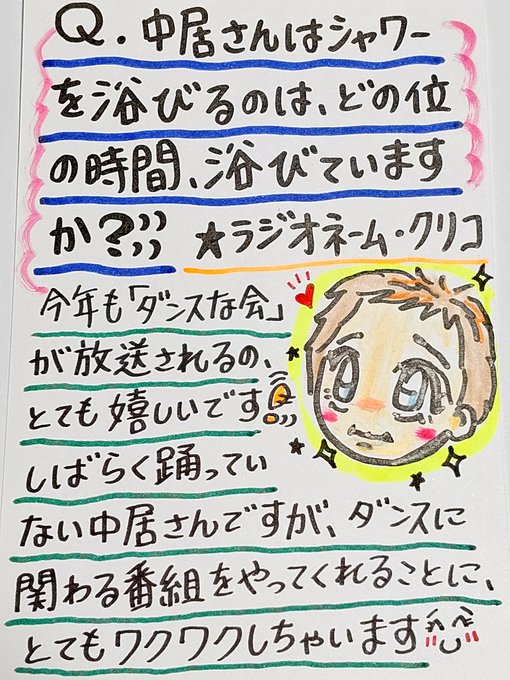 Q.中居さんはシャワー
を浴びるのは、どの位
の時間、浴びています
か?
★ラジオネーム・クリコ
今年も「ダンスな会」
が放送されるの、
とても嬉しいです
しばらく踊ってい
ない中居さんですが、ダンスに
関わる番組をやってくれることに、
とてもワクワクしちゃいます